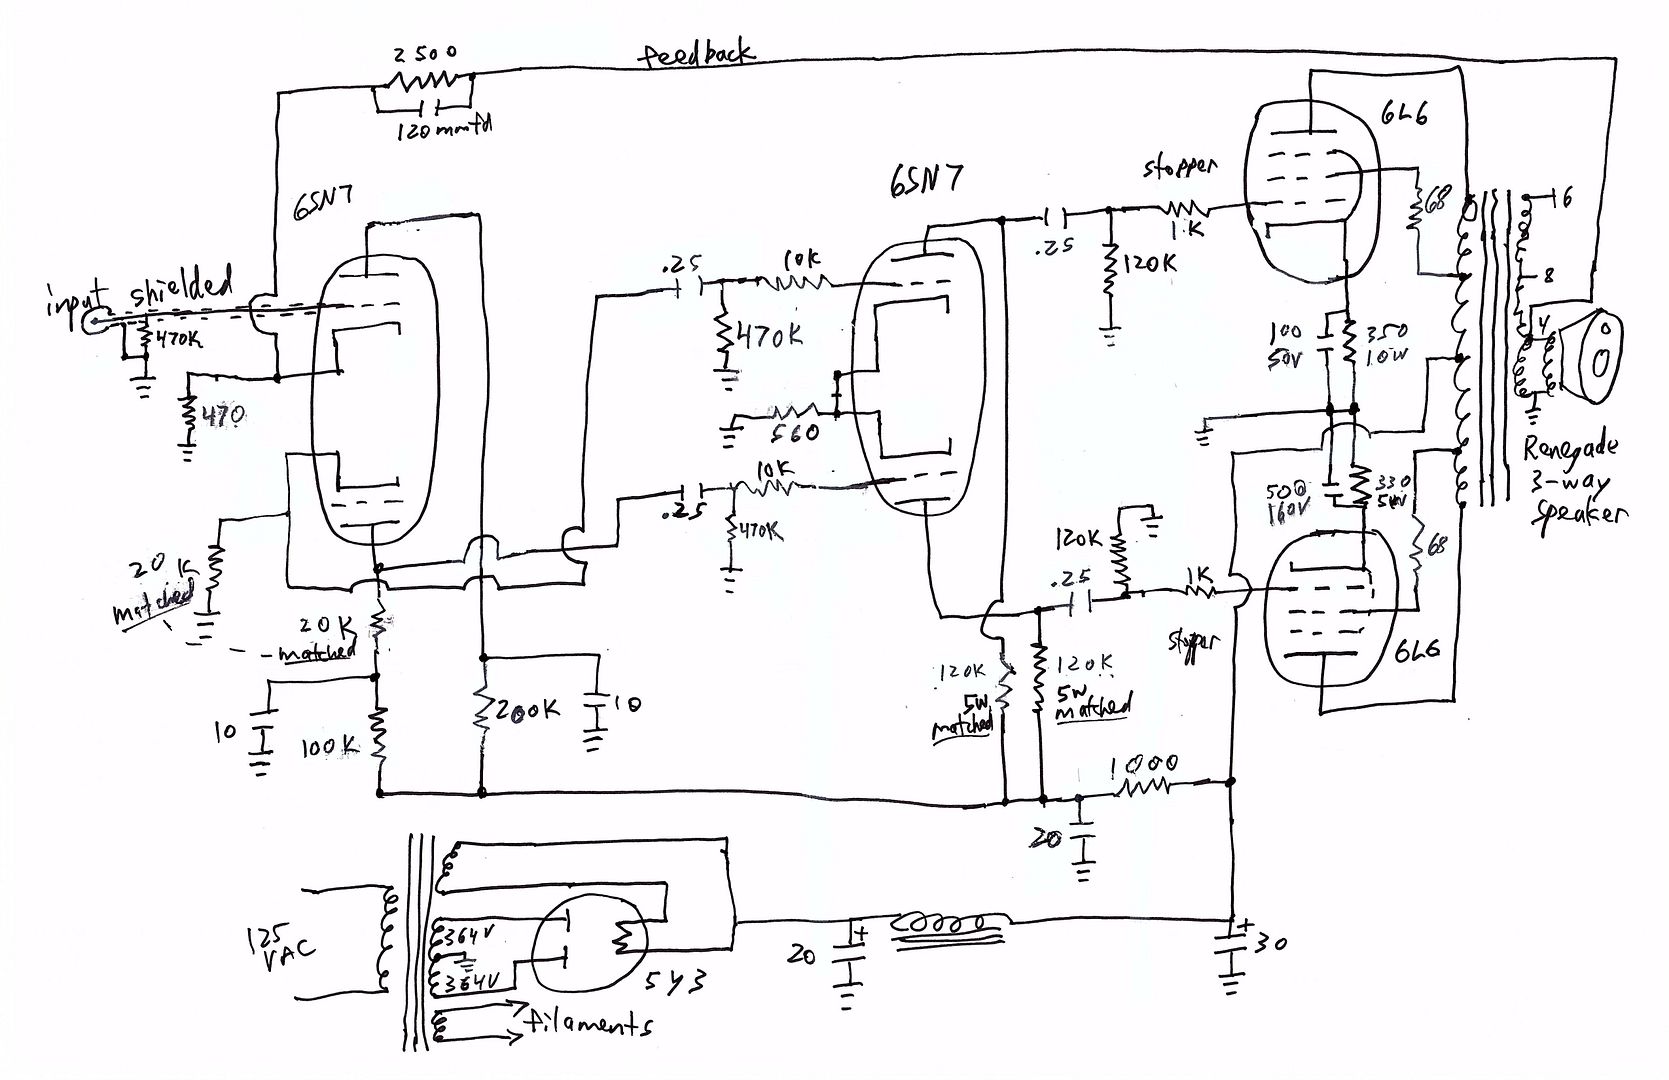 2500
feedback
120mmfd
6SN7
input
shielded
470K
470
20K
matched
20K
matched
10
100K
200K
10
.25
10K
470K
560
10K
.25
470K
6SN7
.25
stopper
1K
120K
6L6
68
6
8
4
100
50V
350
10W
500
160V
330
5W
68
120K
.25
1K
stopper
6L6
Renegade
3-way
speaker
120K
5W
matched
120K
5W
matched
1000
20
125
VAC
364V
364V
5Y3
filaments
20
+
+
30